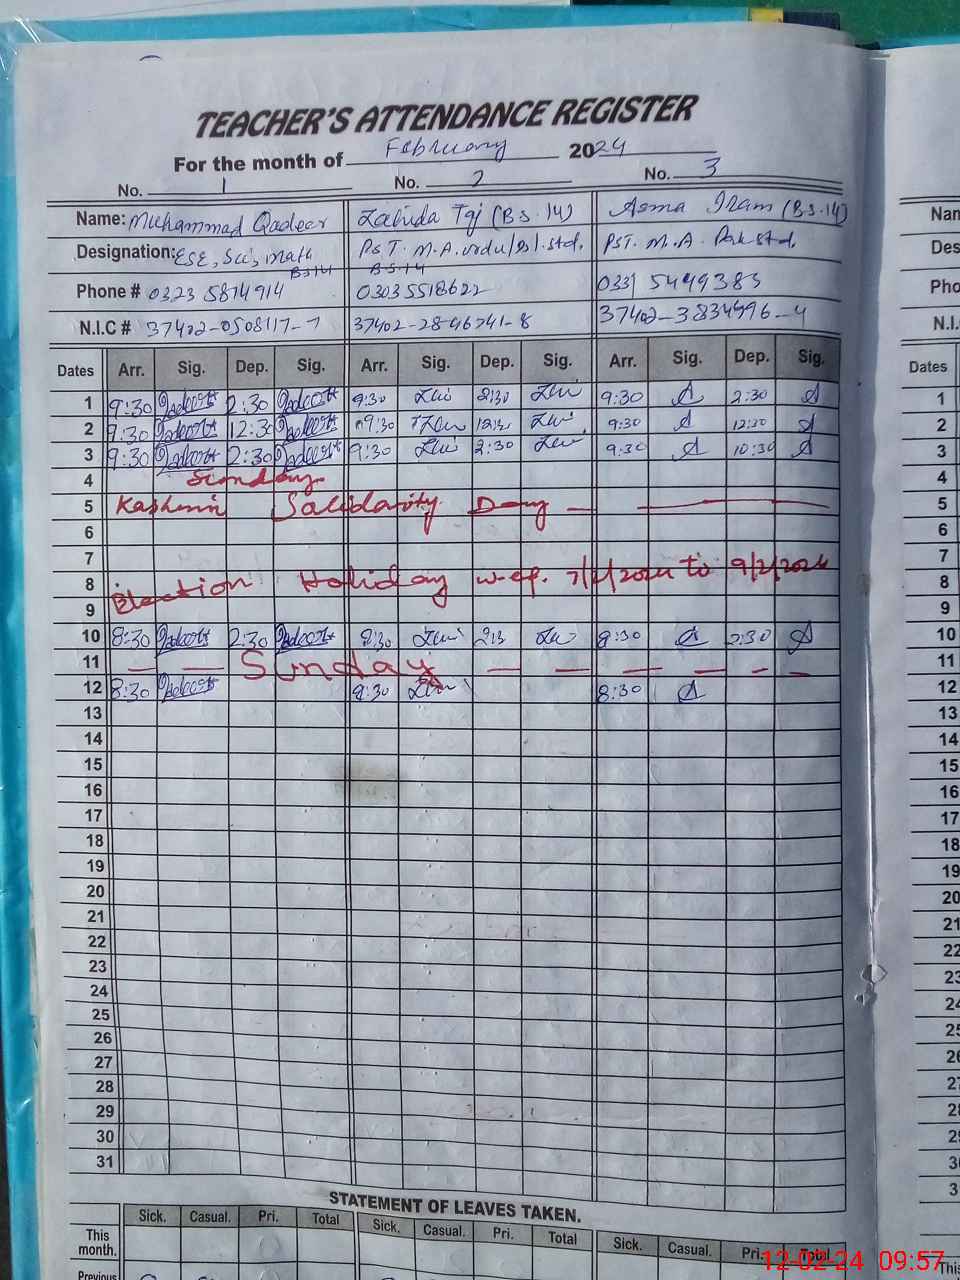 TEACHER'S ATTENDANCE REGISTER
For the month of February 2024
No. 1 No. 2 No. 3
Name: Muhammad Qadeer Zabida Taj (BS.14) Asma Iram (B.S.14)
Designation: ESE, Sci, math BS14 PST. M.A. urdu/Isl.std. BS.14 PST. M.A. Pak std.
Phone # 0323 5814914 0303 5518622 0331 5449383
N.I.C # 37402-0508117-7 37402-2896741-8 37402-3834996-4
Dates Arr. Sig. Dep. Sig. Arr. Sig. Dep. Sig. Arr. Sig. Dep. Sig.
1 9:30 Qadeer 2:30 Qadeer 9:30 2:30 9:30 2:30
2 9:30 Qadeer 12:30 Qadeer 9:30 12:30 9:30 12:30
3 9:30 Qadeer 2:30 Qadeer 9:30 2:30 9:30 10:30
4 Sunday
5 Kashmir Salidarity Day
6
7
8 Election Holiday w.ef. 7/2/2024 to 9/2/2024
9
10 8:30 Qadeer 2:30 Qadeer 8:30 2:3 8:30 2:30
11 Sunday
12 8:30 Qadeer 8:30 8:30
13
14
15
16
17
18
19
20
21
22
23
24
25
26
27
28
29
30
31
STATEMENT OF LEAVES TAKEN.
Sick. Casual. Pri. Total Sick. Casual. Pri. Total Sick. Casual. Pri. Total
This month.
Previous
12-02-24 09:57